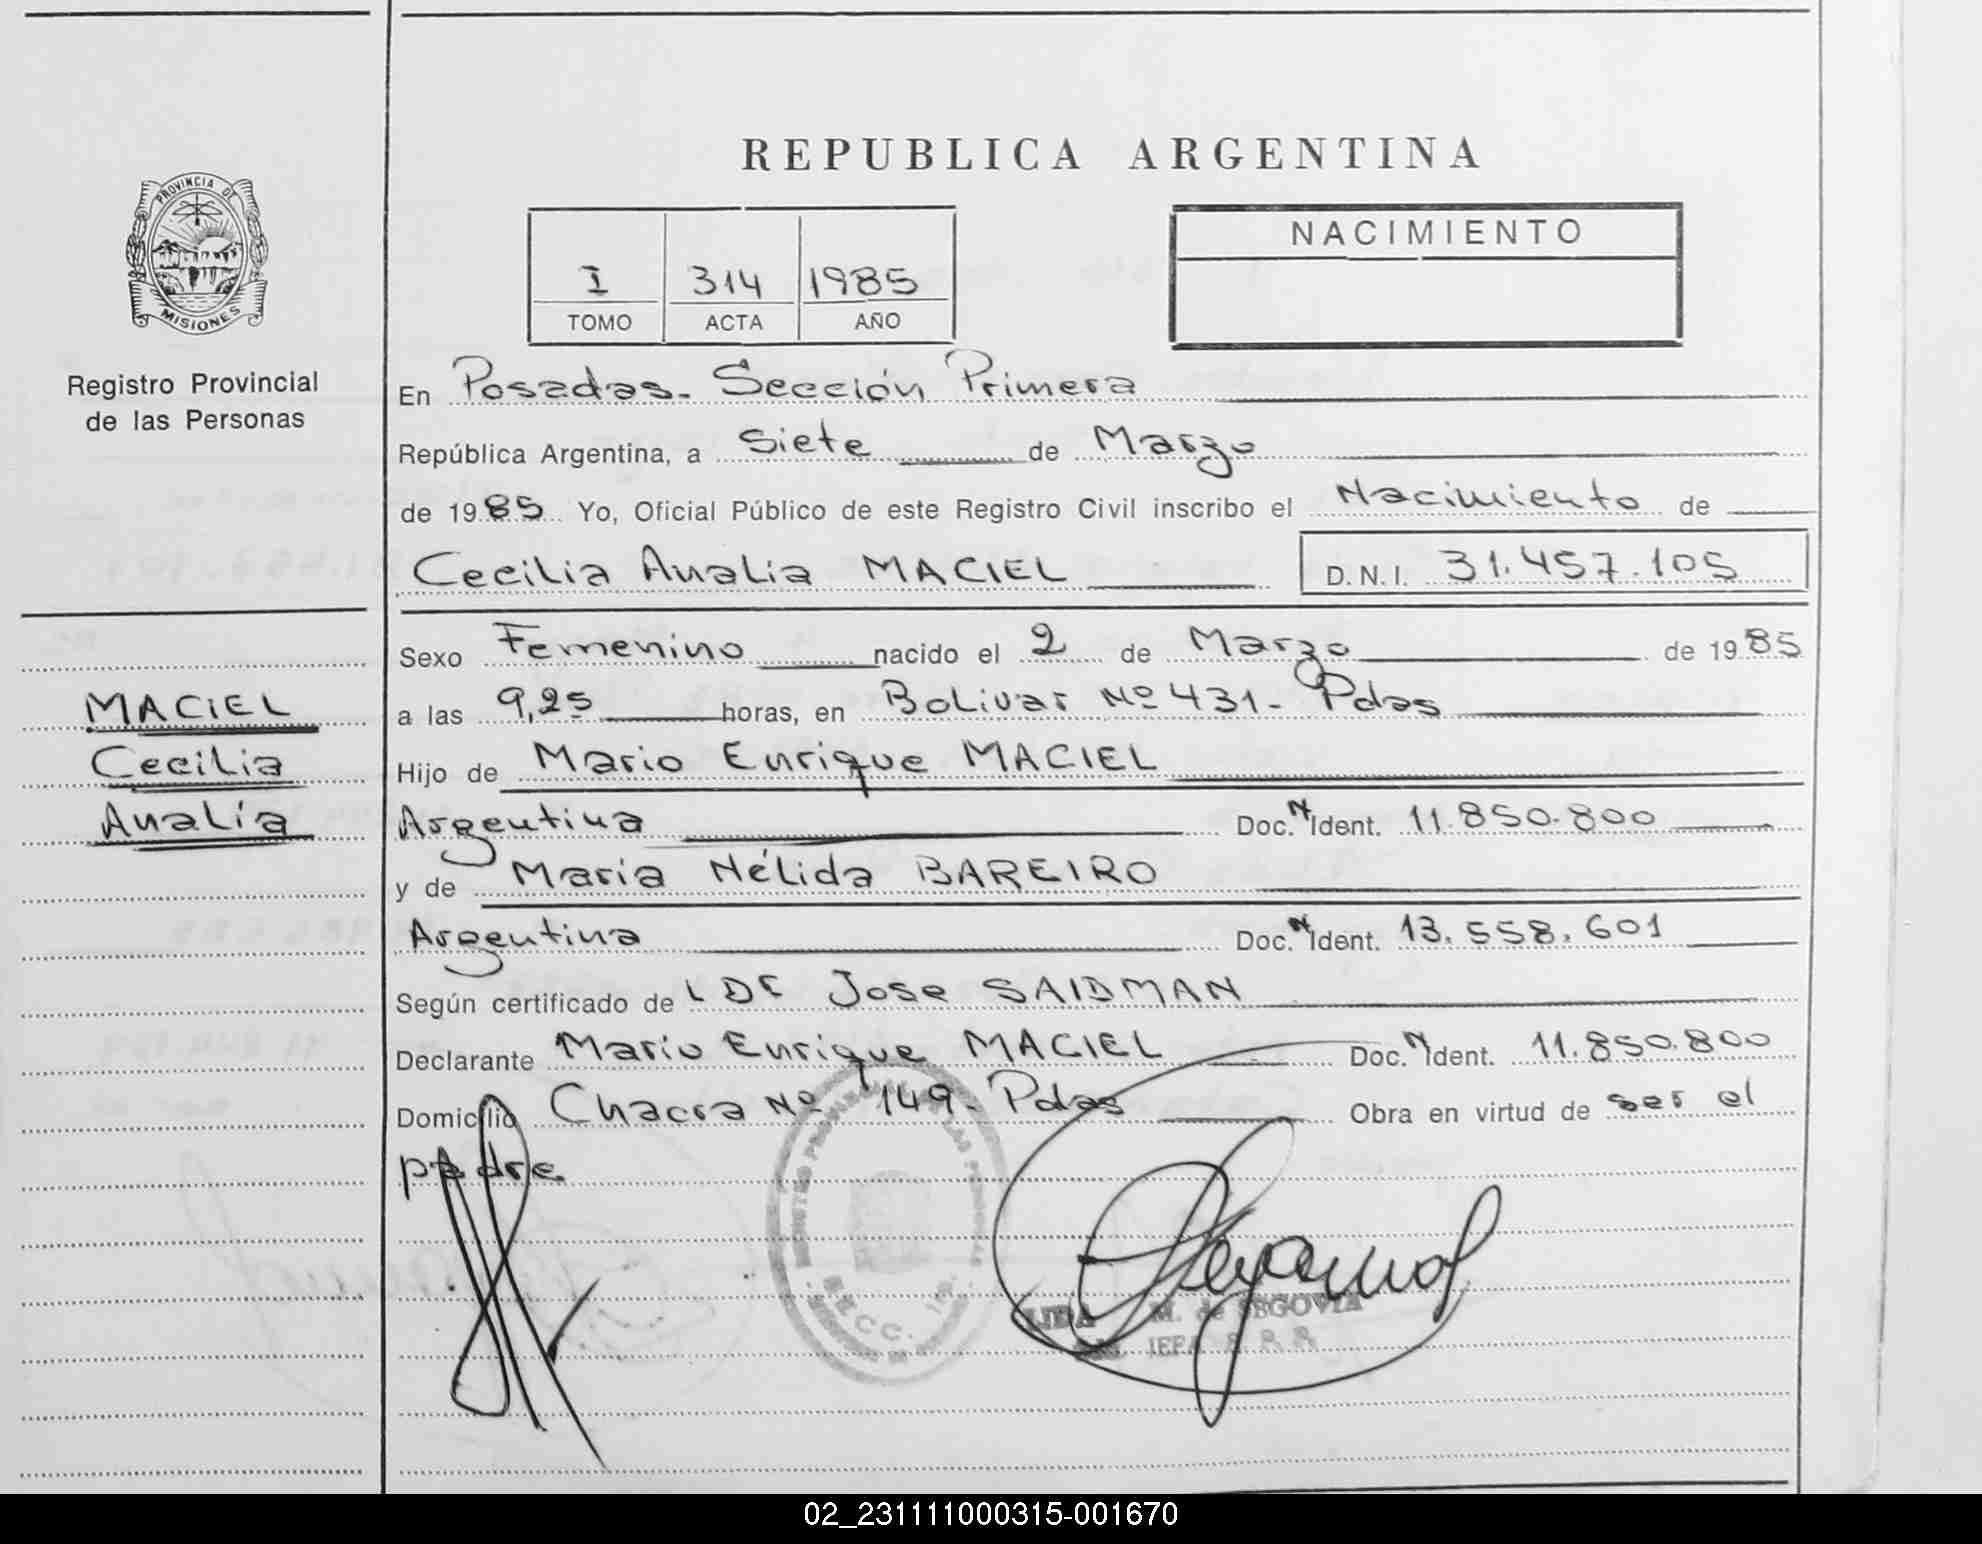 REPUBLICA ARGENTINA
PROVINCIA DE
MISIONES
Registro Provincial
de las Personas
I 314 1985
TOMO ACTA AÑO
NACIMIENTO
En Posadas. Sección Primera
República Argentina, a Siete de Marzo
de 1985 Yo, Oficial Público de este Registro Civil inscribo el Nacimiento de
Cecilia Analia MACIEL D.N.I. 31.457.105
Sexo Femenino nacido el 2 de Marzo de 1985
MACIEL
Cecilia
Analía
a las 9,25 horas, en Bolivar Nº 431- Pdas
Hijo de Mario Enrique MACIEL
Argentina Doc. N Ident. 11.850.800
y de Maria Nélida BAREIRO
Argentina Doc. N Ident. 13.558.601
Según certificado de Dr Jose SAIDMAN
Declarante Mario Enrique MACIEL Doc. N Ident. 11.850.800
Domicilio Chacra Nº 149- Pdas Obra en virtud de ser el
padre
LIDA M. de SEGOVIA
02_231111000315-001670